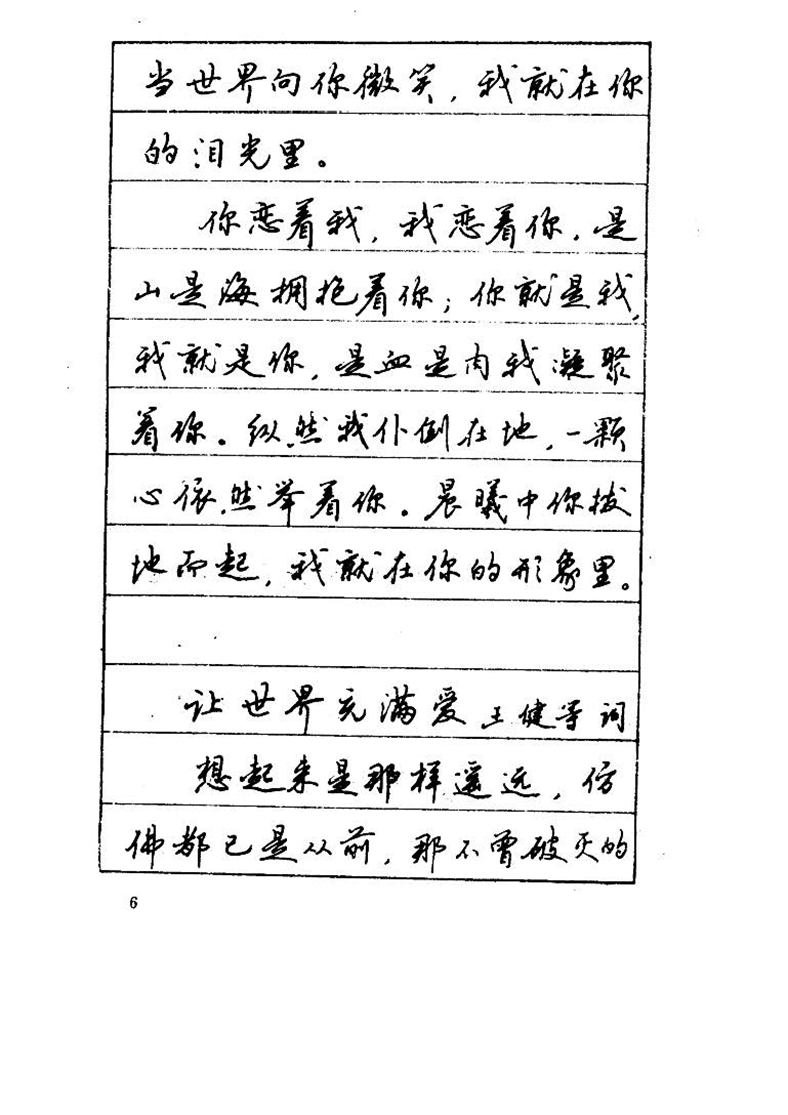 当世界向你微笑，我就在你
的泪光里。
你恋着我，我恋着你，是
山是海拥抱着你；你就是我，
我就是你，是血是肉我凝聚
着你。纵然我仆倒在地，一颗
心依然举着你。晨曦中你拔
地而起，我就在你的形象里。
让世界充满爱 王健等词
想起来是那样遥远，仿
佛都已是从前，那不曾破灭的
6